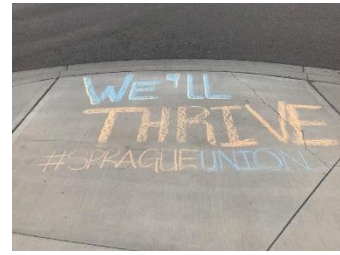 WE'LL
THRIVE
#SPRAGUEUNION